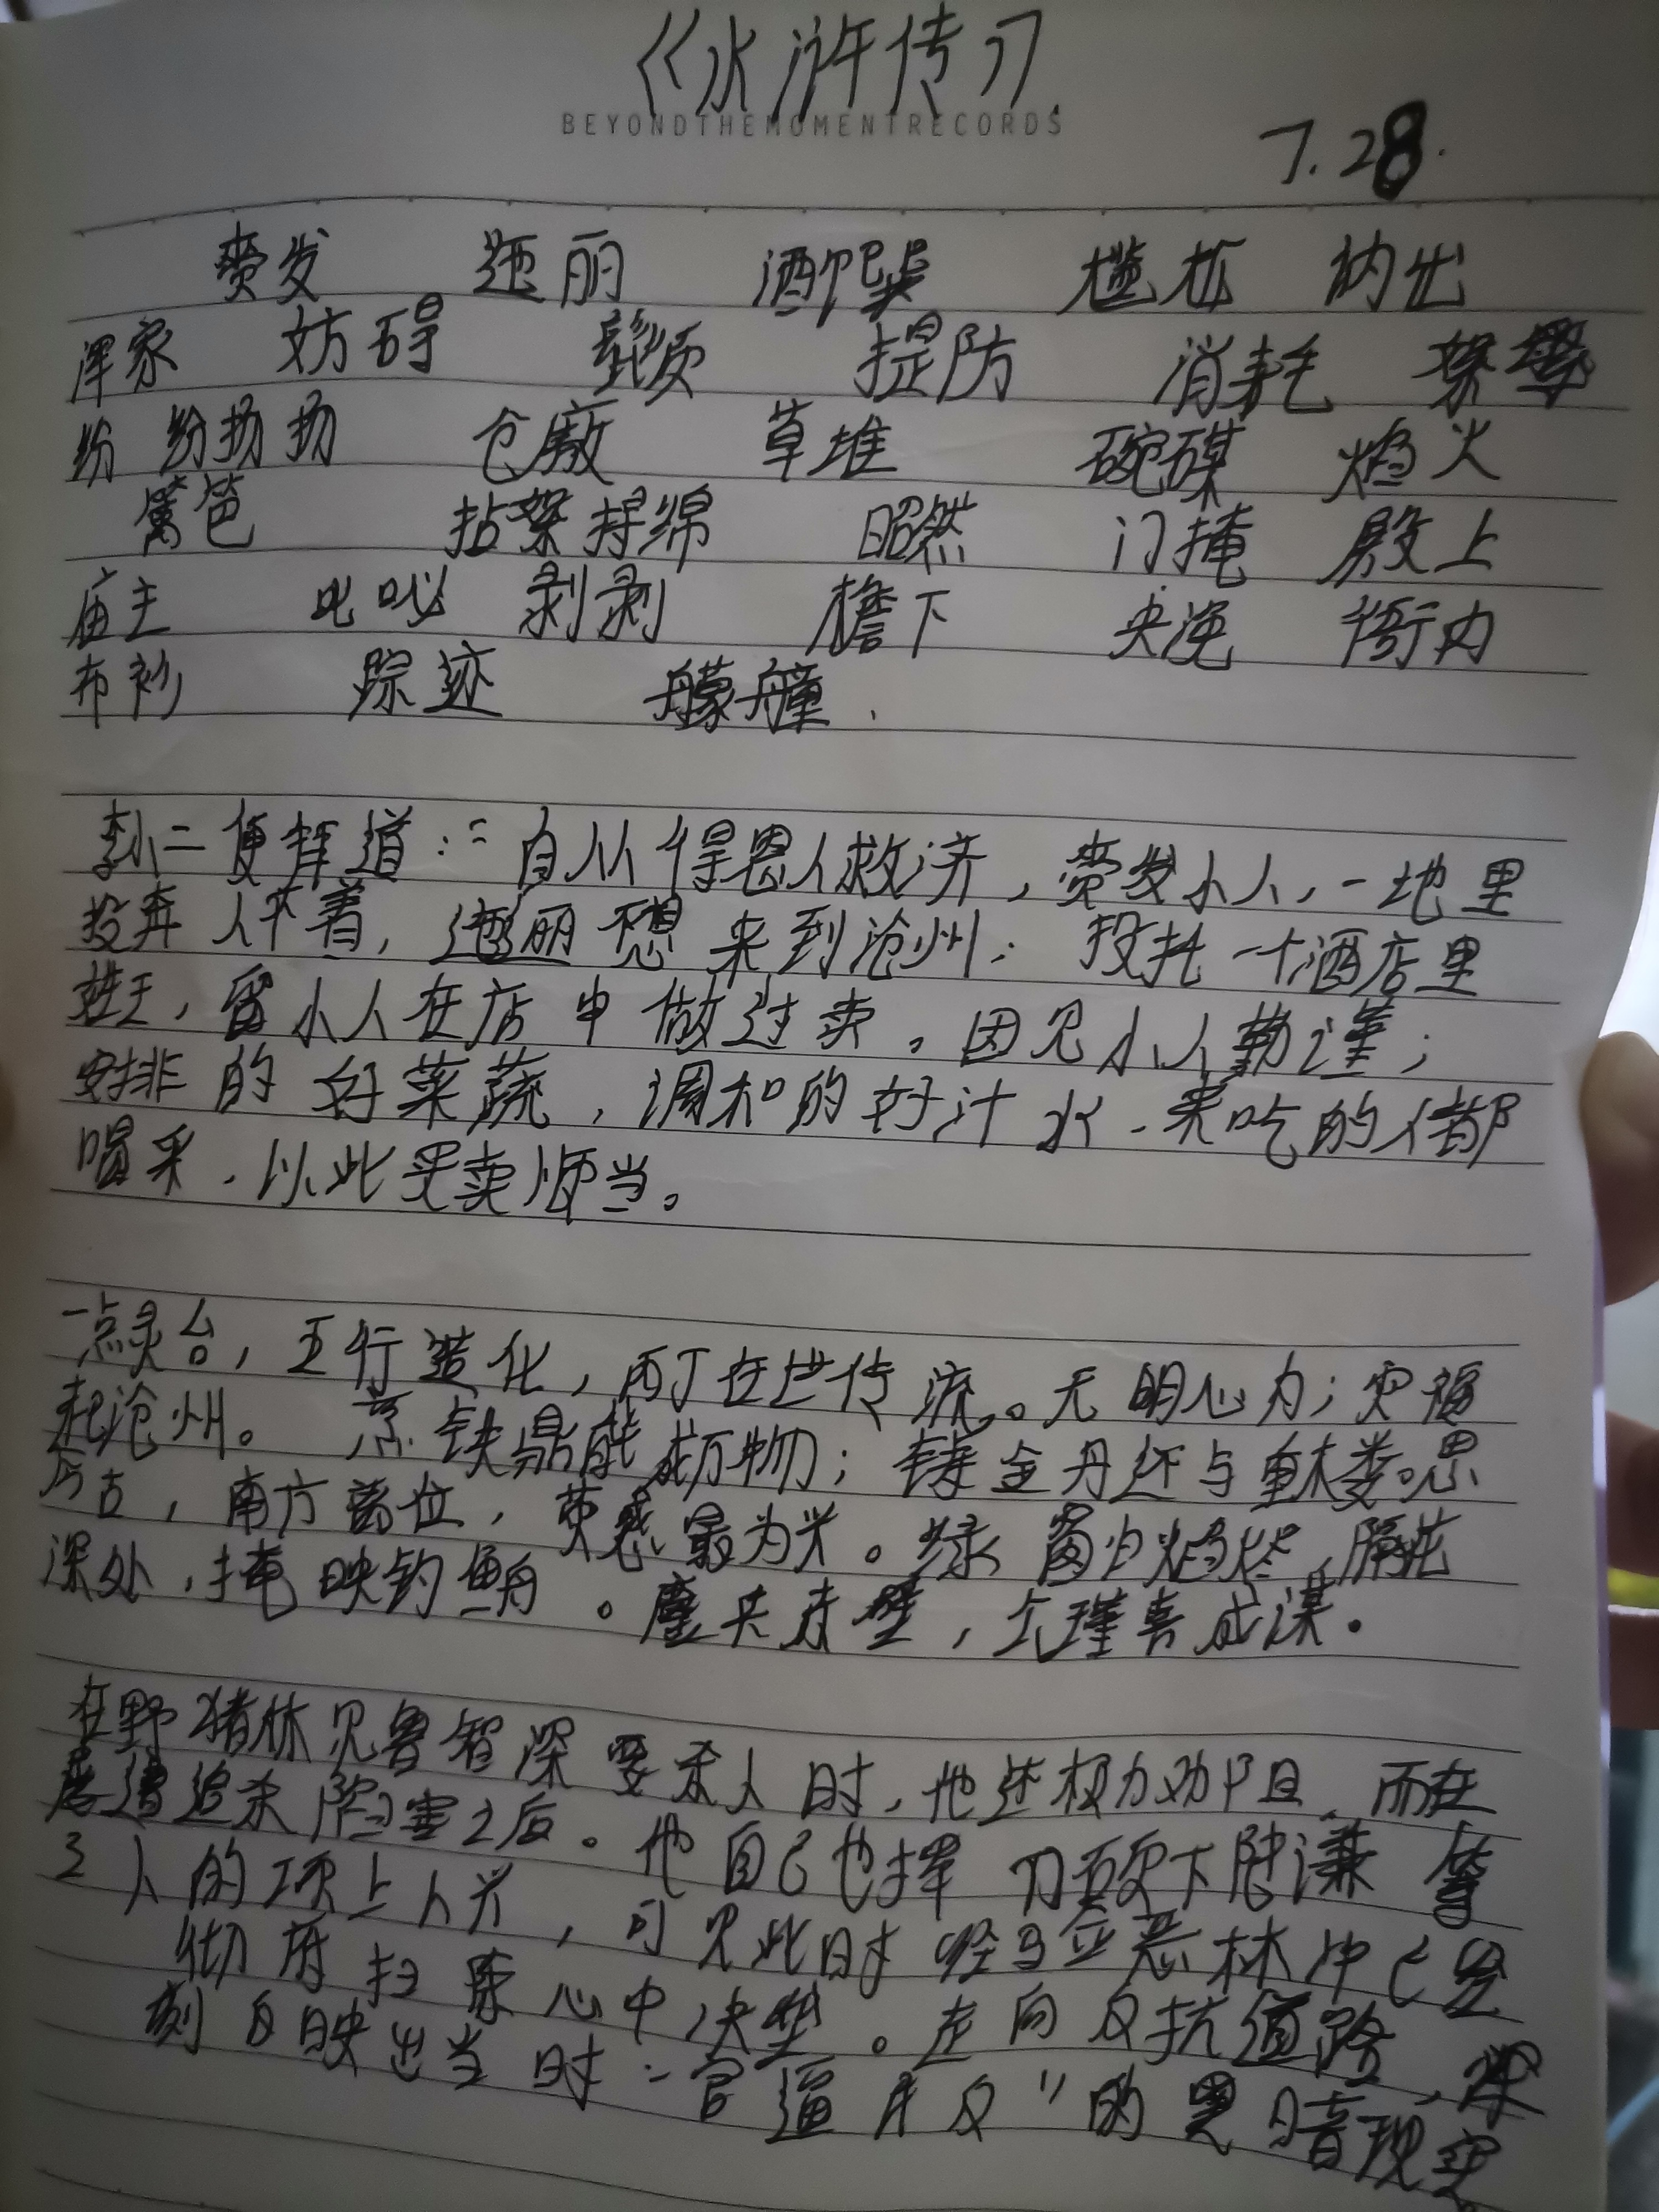 《水浒传》
BEYONDTHEMOMENTRECORDS
7.28.
赍发 迤丽 酒馔 尴尬 纳出
浑家 妨碍 髭须 提防 消耗 絮
纷 纷扬扬 仓廒 草堆 碗碟 焰火
篱笆 拈絮挦绵 昭然 门掩 殿上
庙主 叱 剥剥 檐下 央浼 衙内
布衫 踪迹 艨艟.
李小二便拜道:“自从得恩人救济,赍发小人,一地里
投奔人不着,迤丽不想来到沧州.投托一个酒店里
姓王,留小人在店中做过卖。因见小人勤谨;
安排的好菜蔬,调和的好汁水.来吃的人都
喝采.以此买卖顺当。
一点灵台,五行造化,丙丁在世传流。无明心内;灾祸
起沧州。烹铁鼎能成万物;铸金丹还与重楼。思
今古,南方离位,荧惑最为头。绿窗归焰烬,隔花
深处,掩映钓鱼舟。鏖兵赤壁,公瑾喜成谋.
在野猪林见鲁智深要杀人时,他还极力劝阻.而在
屡遭追杀陷害之后。他自己也挥刀砍下陆谦等
3人的项上人头,可见此时 林冲已经
彻底扫除心中决垫。走向反抗道路,深
刻反映出当时“官逼民反”的黑暗现实